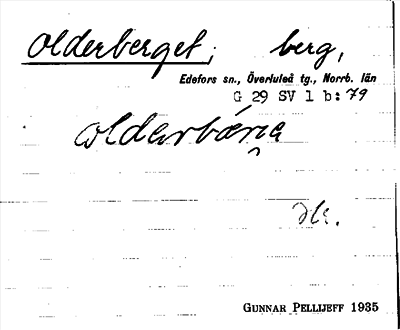 Olderberget; berg,
Edefors sn., Överluleå tg., Norrb. län
G 29 SV 1 b: 79
GUNNAR PELLIJEFF 1935